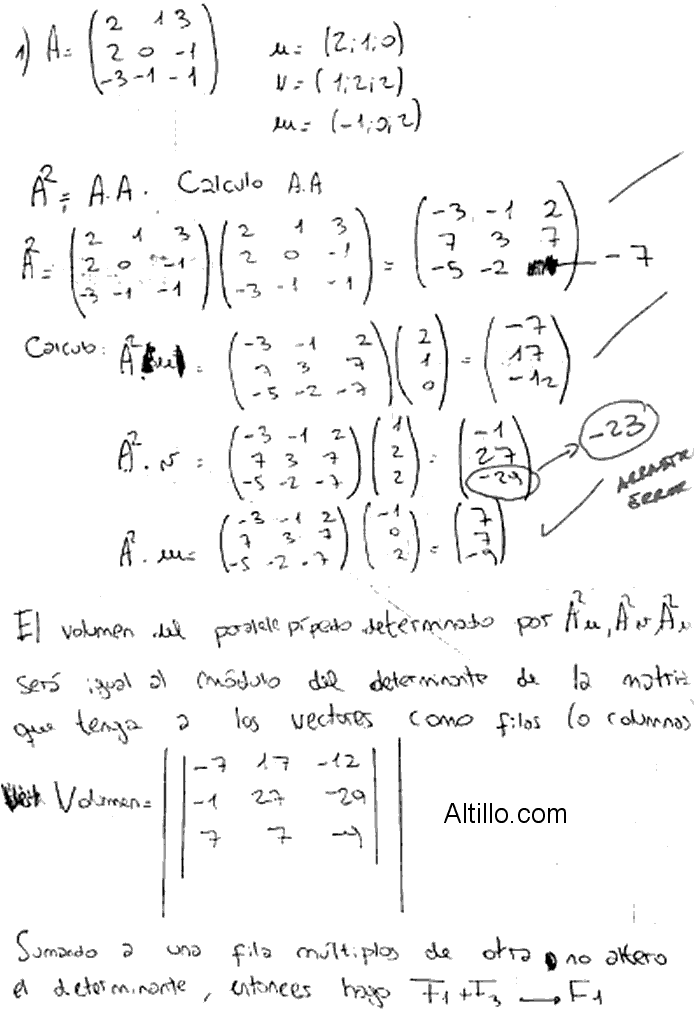 1) A = ( 2 1 3 ) u = (2;1;0)
( 2 0 -1 ) v = (1;2;2)
( -3 -1 -1 ) w = (-1;0;2)
A² = A.A. Calculo A.A
A² = ( 2 1 3 ) ( 2 1 3 ) = ( -3 -1 2 )
( 2 0 -1 ) ( 2 0 -1 ) ( 7 3 7 )
( -3 -1 -1 ) ( -3 -1 -1 ) ( -5 -2 ) — -7
Calculo: A² u = ( -3 -1 2 ) ( 2 ) = ( -7 )
( 7 3 7 ) ( 1 ) ( 17 )
( -5 -2 -7 ) ( 0 ) ( -12 )
A² . v = ( -3 -1 2 ) ( 1 ) = ( -1 ) → -23
( 7 3 7 ) ( 2 ) ( 27 )
( -5 -2 -7 ) ( 2 ) ( -29 )
ARRASTR
ERROR
A² . w = ( -3 -1 2 ) ( -1 ) = ( 7 )
( 7 3 7 ) ( 0 ) ( 7 )
( -5 -2 -7 ) ( 2 ) ( -9 )
El volumen del paralelepípedo determinado por A²u, A²v, A²
será igual al módulo del determinante de la matriz
que tenga a los vectores como filas (o columnas)
Volumen = | | -7 17 -12 | |
| | -1 27 -29 | |
| | 7 7 -9 | |
Altillo.com
Sumando a una fila múltiplos de otra no altero
el determinante, entonces hago F₁ + F₃ → F₁